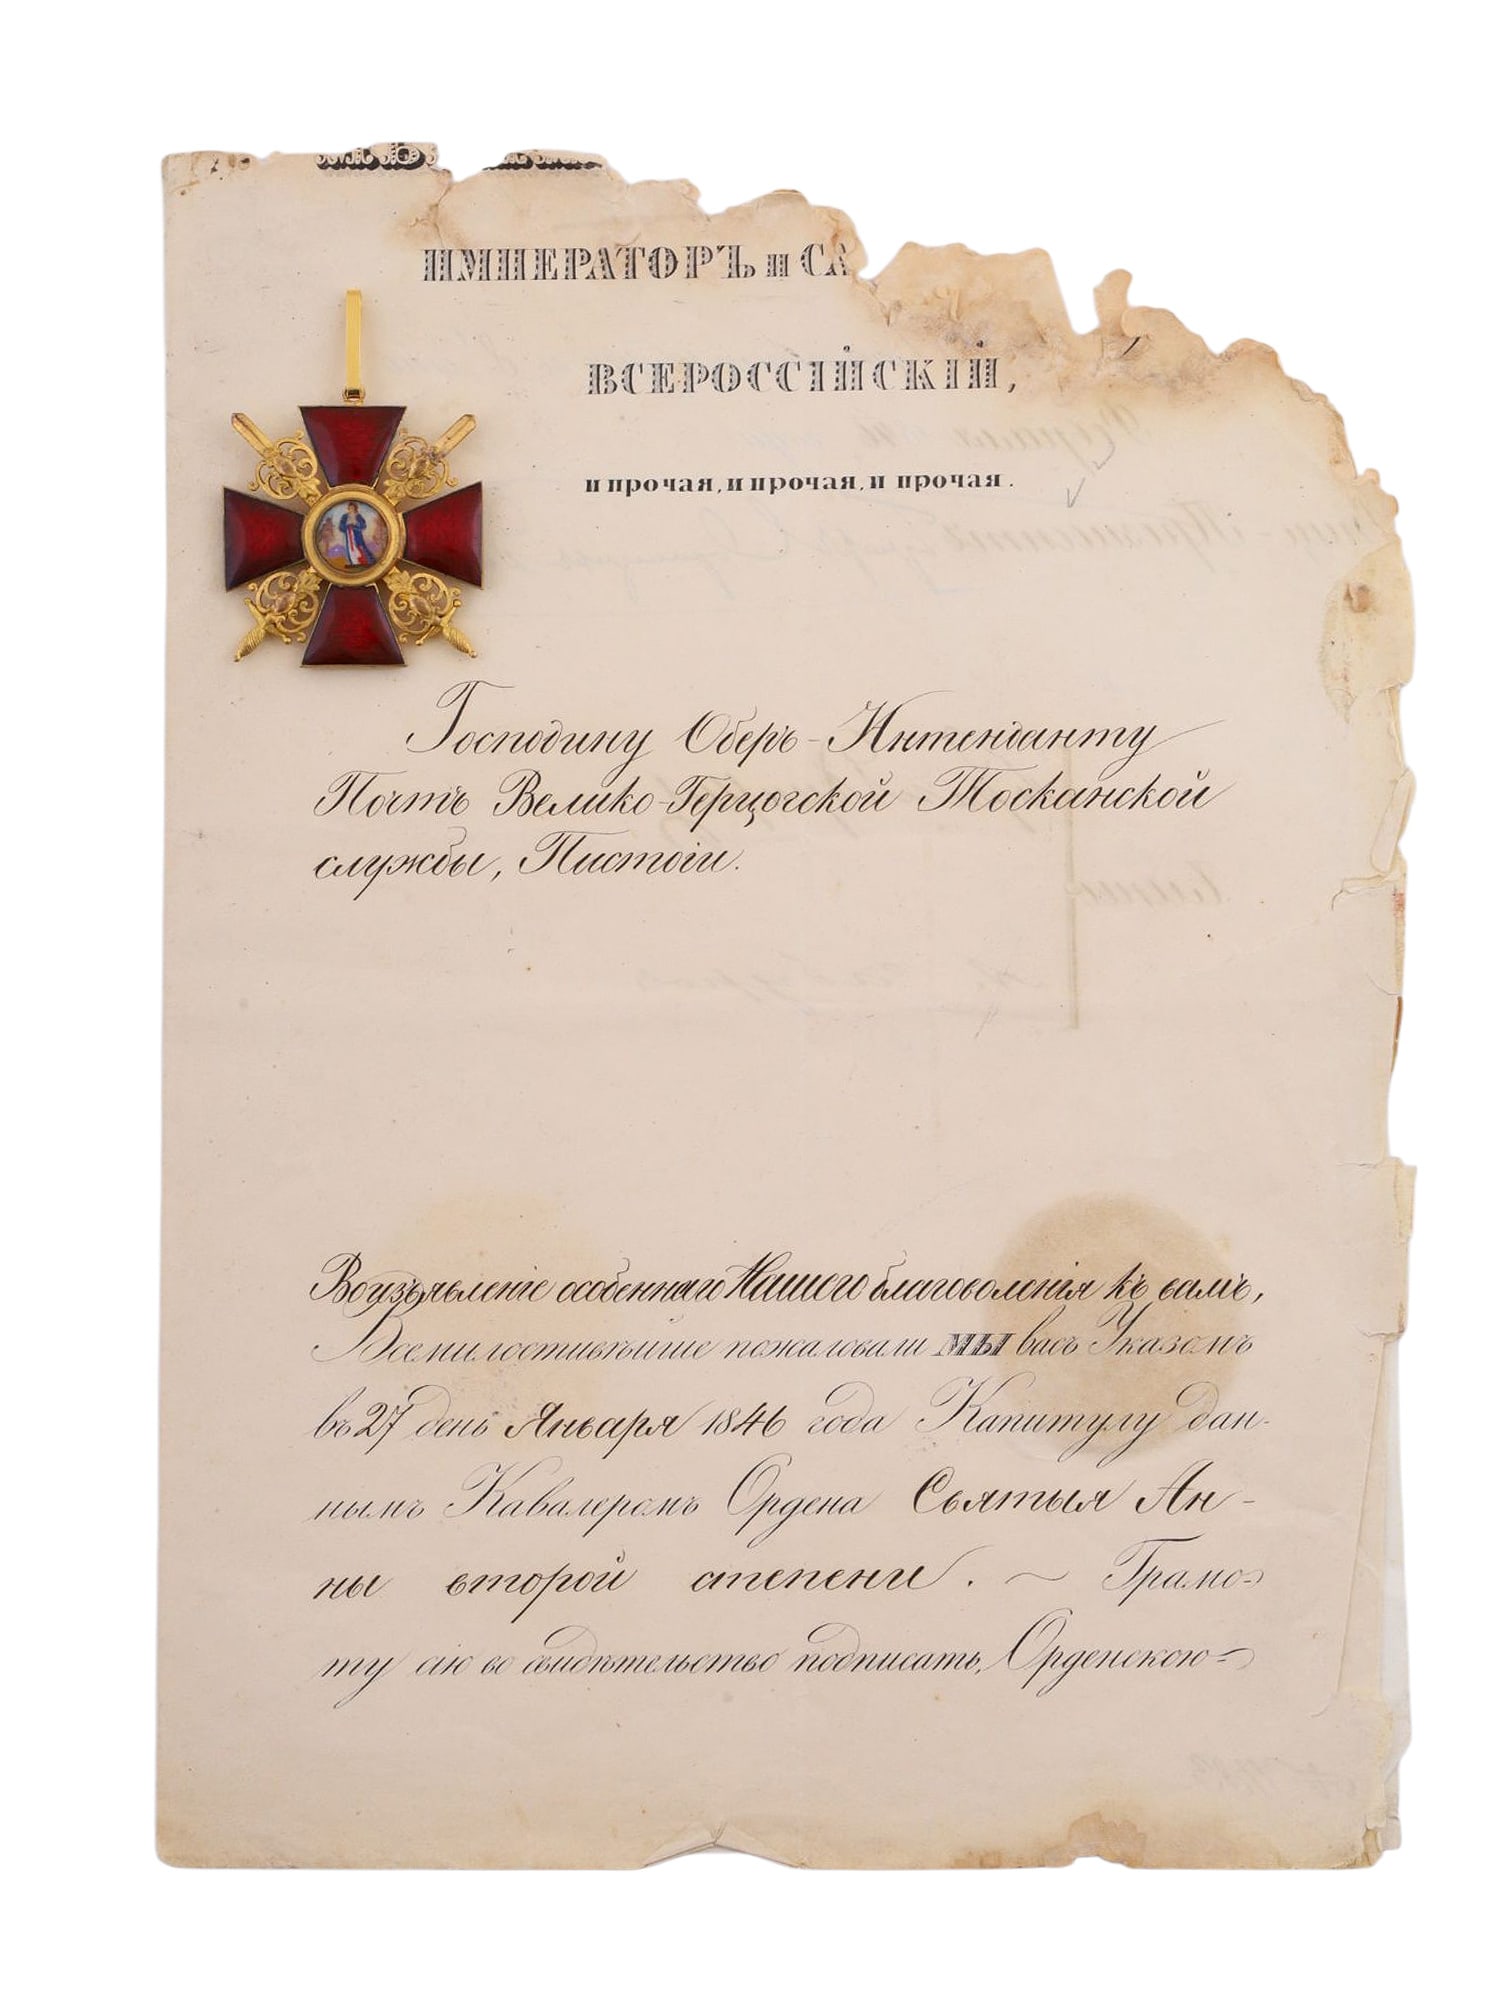 ИМПЕРАТОРЪ и СА
ВСЕРОССІЙСКІЙ,
и прочая, и прочая, и прочая.
Господину Оберъ-Интенданту
Почтъ Велико-Герцогской Тосканской
службы, Пистои.
Во изъявленіе особеннаго Нашего благоволенія къ вамъ,
Всемилостивѣйше пожаловали МЫ васъ Указомъ
въ 27 день Января 1846 года Капитулу дан-
нымъ Кавалеромъ Ордена Святыя Ан-
ны второй степени. ~ Грамо-
ту сію во свидѣтельство подписать, Орденскою-